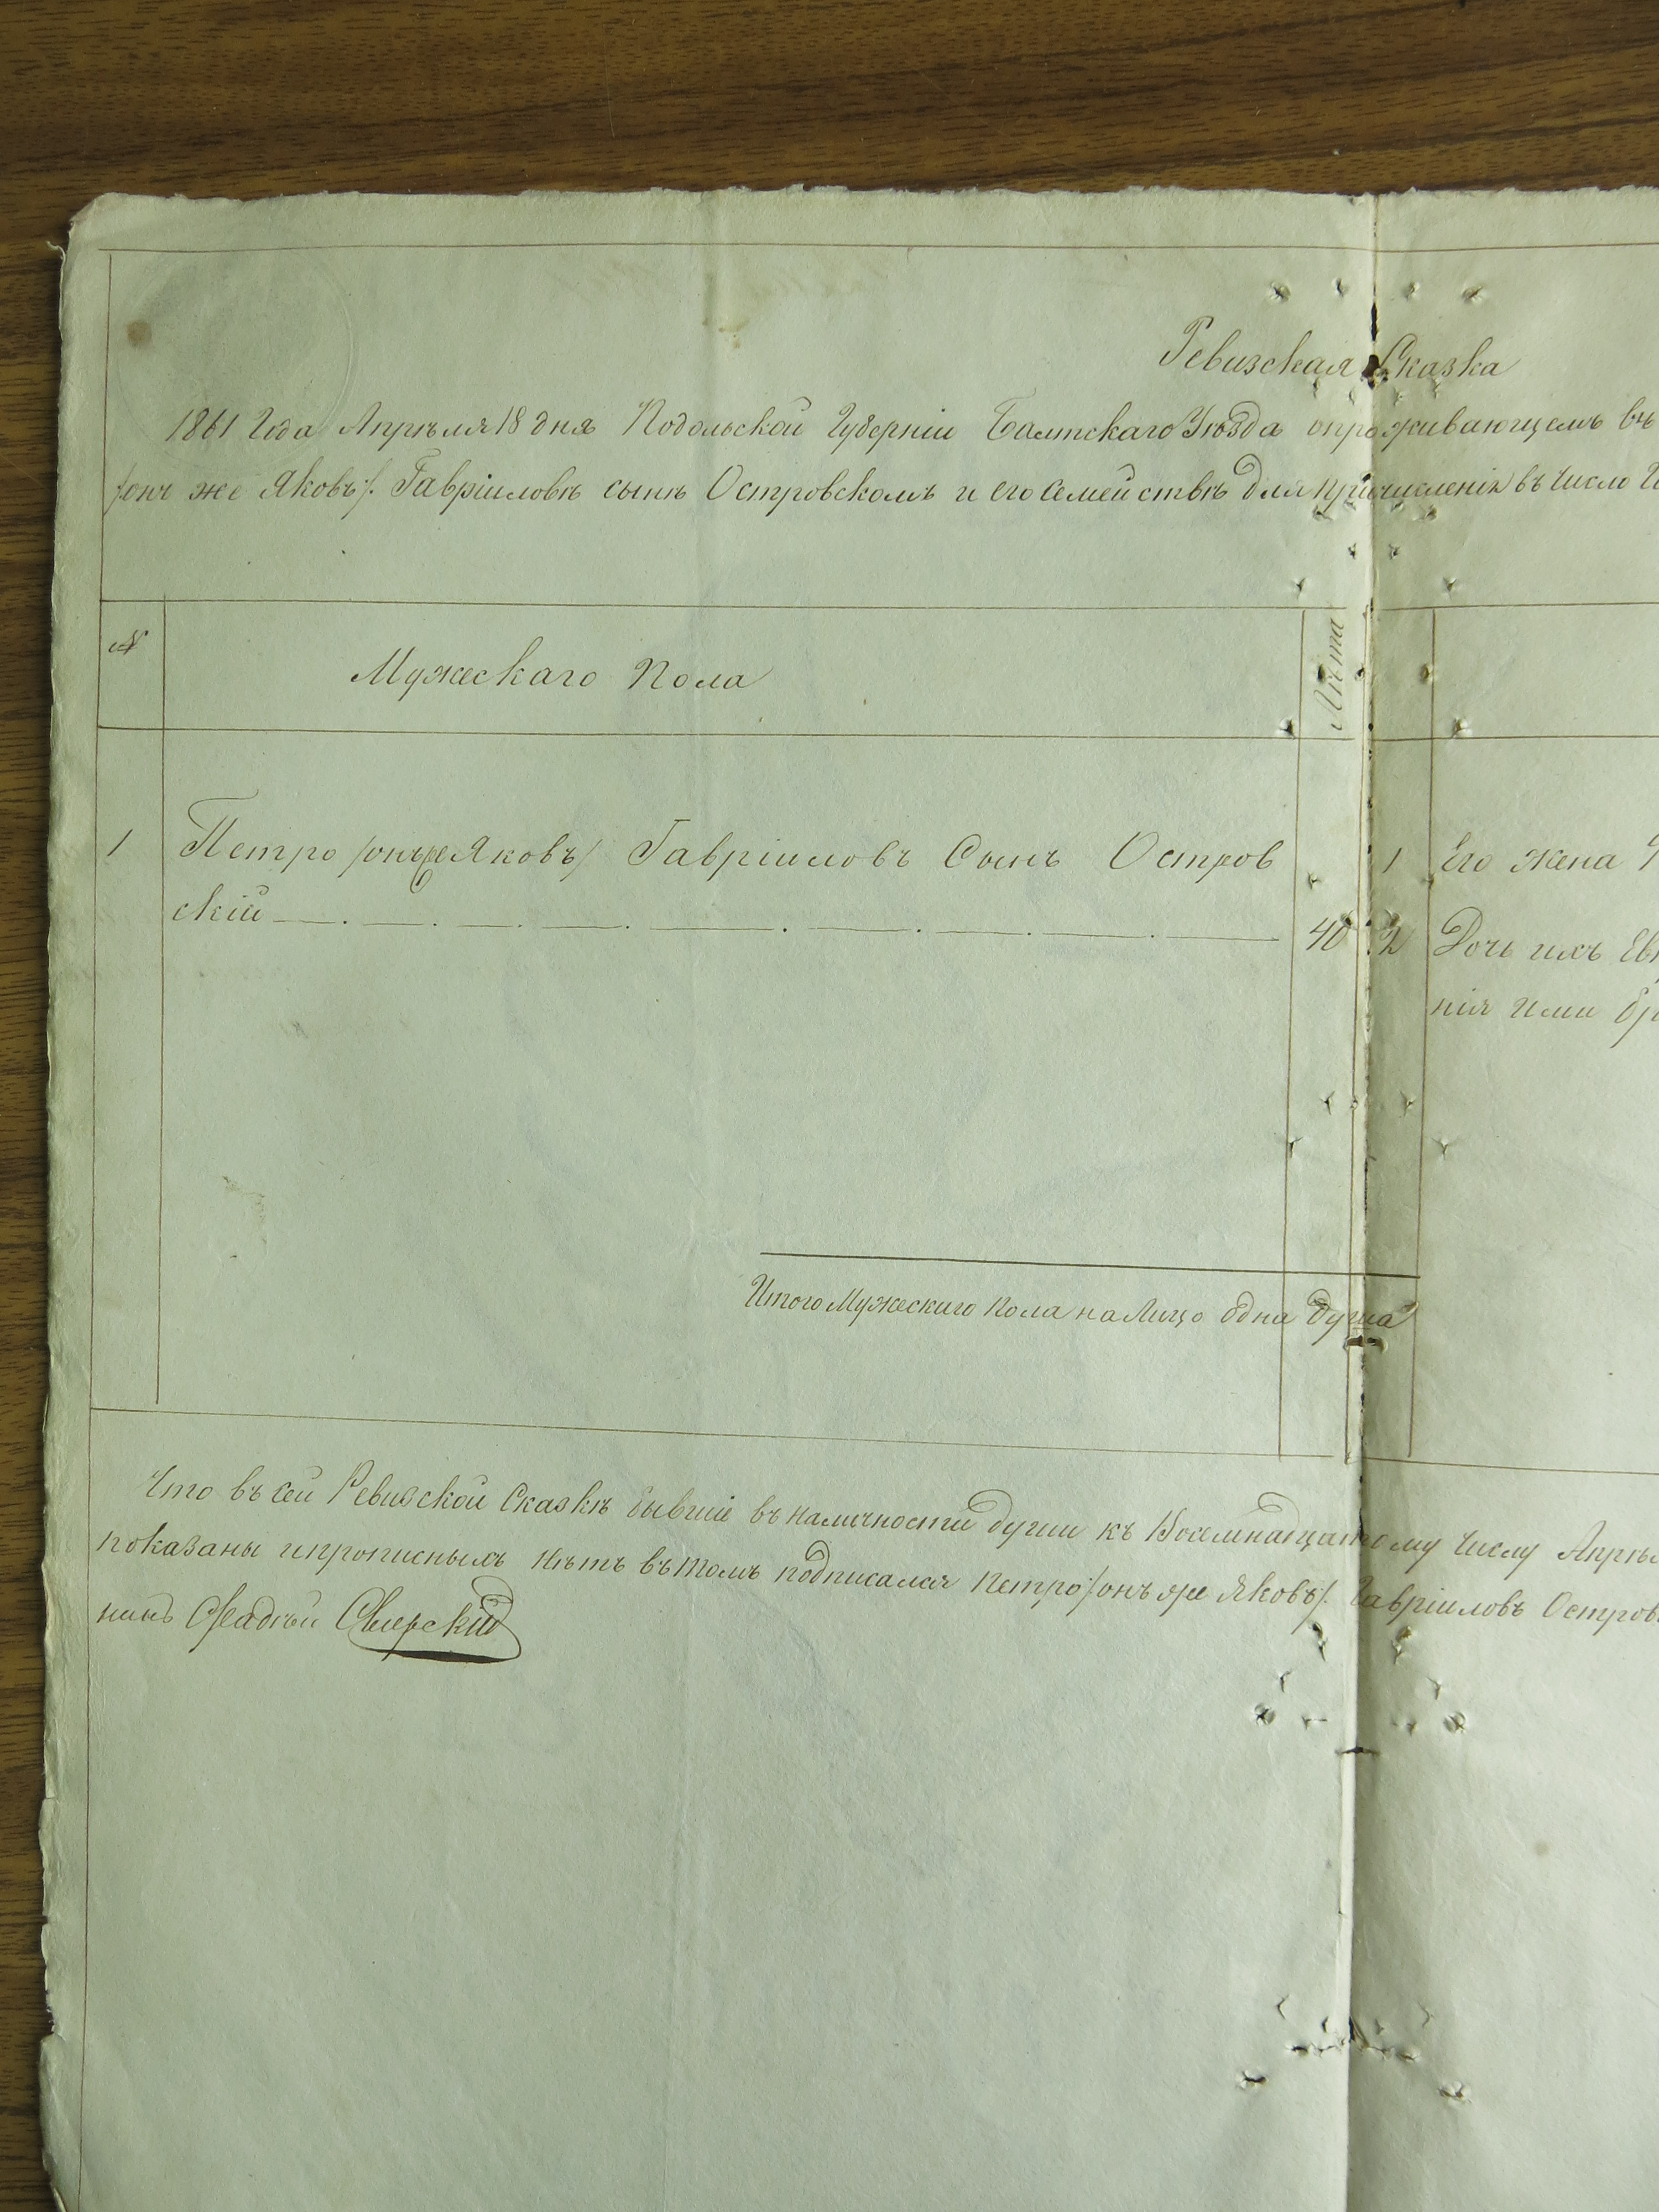 Ревизская Сказка
1861 Года Апрѣля 18 дня Подольской Губерніи Балтскаго Уѣзда о проживающемъ въ
/онъ же Яковъ/. Гавріиловѣ сынѣ Островскомъ и его Семействѣ для причисленія въ Число
№
Мужескаго Пола
Лѣта
1 Петро /онъ же Яковъ/ Гавріиловъ Сынъ Остров
скій
40
1 Его жена
2 Дочь ихъ
нія ими
Итого Мужескаго Пола на Лицо Одна Душа
Что въ сей Ревизской Сказкѣ бывшіе въ наличности души къ Восемнадцатому Числу Апрѣл
показаны и прописныхъ нѣтъ въ томъ подписался Петро /онъ же Яковъ/. Гавріиловъ Остров
нинъ Свирскій